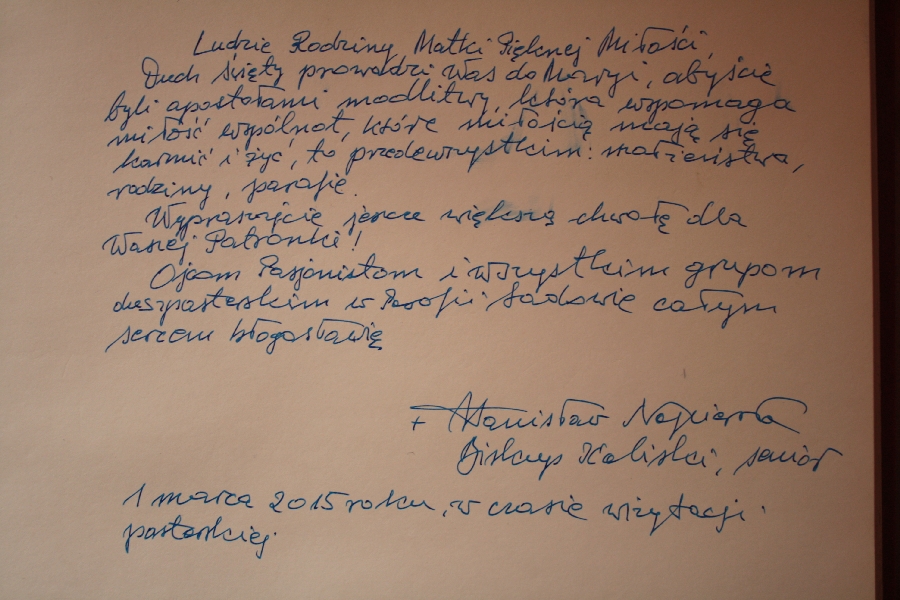 Ludzie Rodziny Matki Pięknej Miłości,
Duch Święty prowadzi Was do Maryi, abyście
byli apostołami modlitwy, która wspomaga
miłość wspólnot, które miłością mają się
karmić i żyć, to przedewszystkim: małżeństwa,
rodziny, parafie.
Wypraszajcie jeszcze większą chwałę dla
Waszej Patronki!
Ojcom Pasjonistom i wszystkim grupom
duszpasterskim w Parafii Sadowie całym
sercem błogosławię
+ Stanisław Napierała
Biskup Kaliski, senior
1 marca 2015 roku, w czasie wizytacji
pasterskiej.